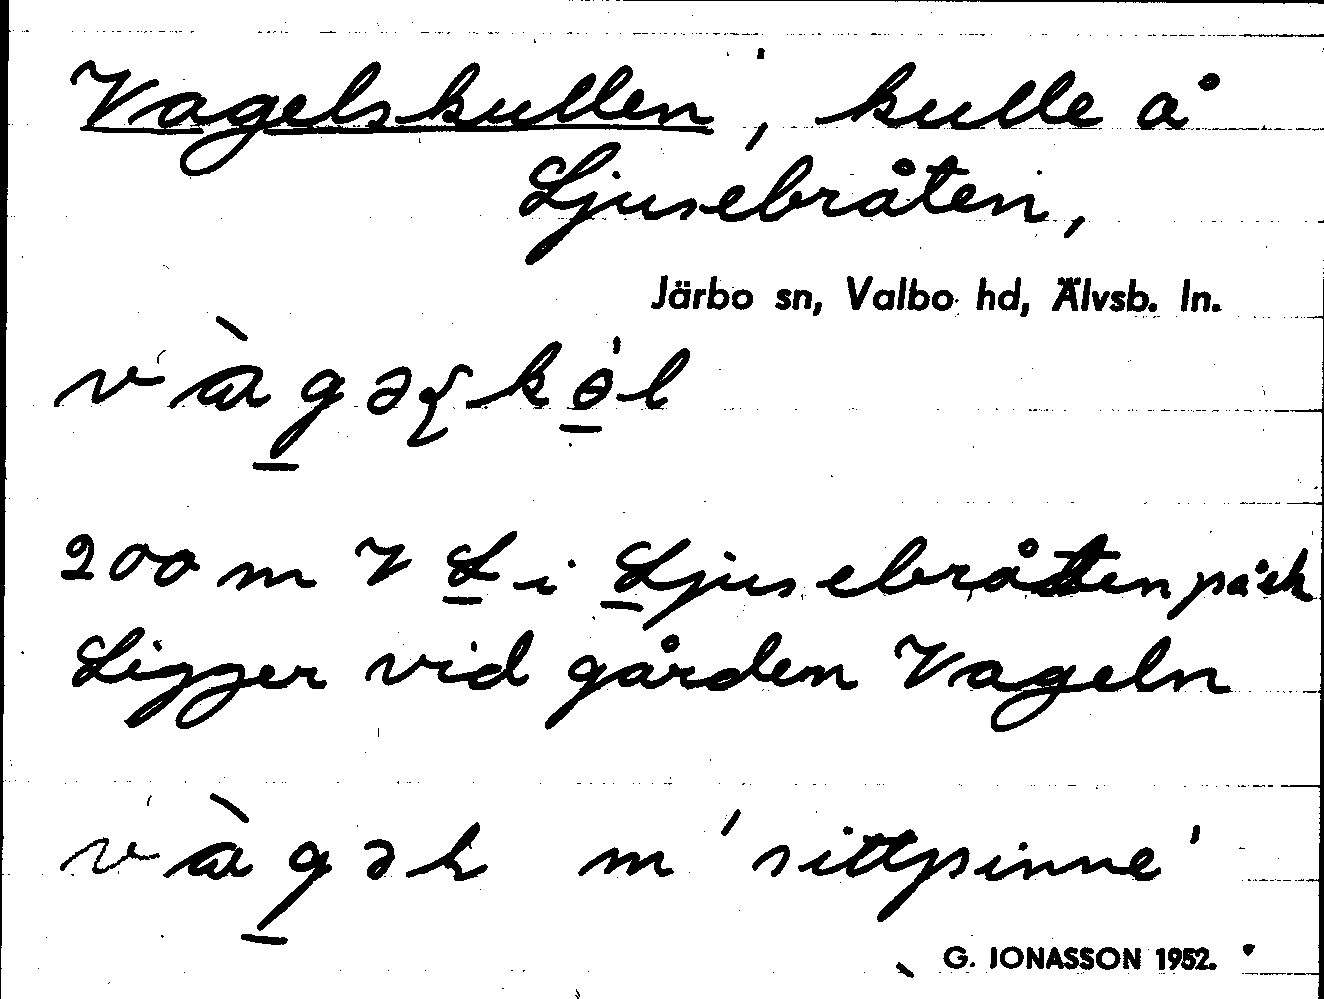 Vagelskullen, kulle å
Ljusebråten,
Järbo sn, Valbo hd, Älvsb. ln.
200 m V L i Ljusebråten på ek
Ligger vid gården Vageln
m 'sittpinne'
G. JONASSON 1952.